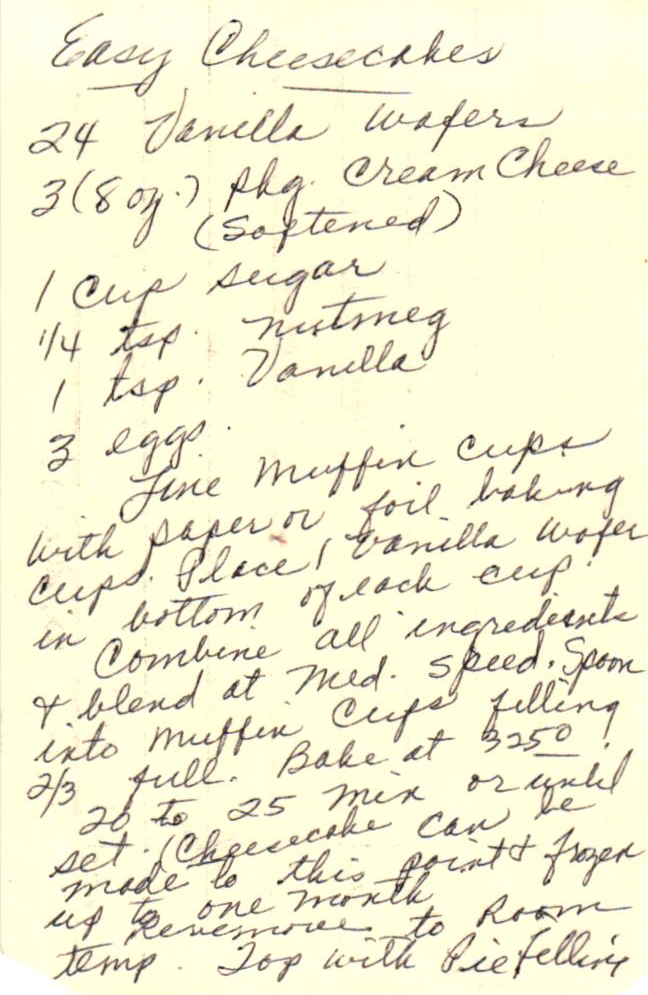 Easy Cheesecakes
24 Vanilla wafers
3 (8 oz.) pkg. Cream Cheese
(Softened)
1 Cup sugar
1/4 tsp. nutmeg
1 tsp. Vanilla
3 eggs.
Line Muffin Cups
with paper or foil baking
cups. Place 1 Vanilla wafer
in bottom of each cup.
Combine all ingredients
& blend at Med. Speed. Spoon
into Muffin Cups filling
2/3 full. Bake at 325°
20 to 25 Min or until
set. (Cheesecake can be
made to this point & frozen
up to one month
to Room
temp. Top with Pie filling